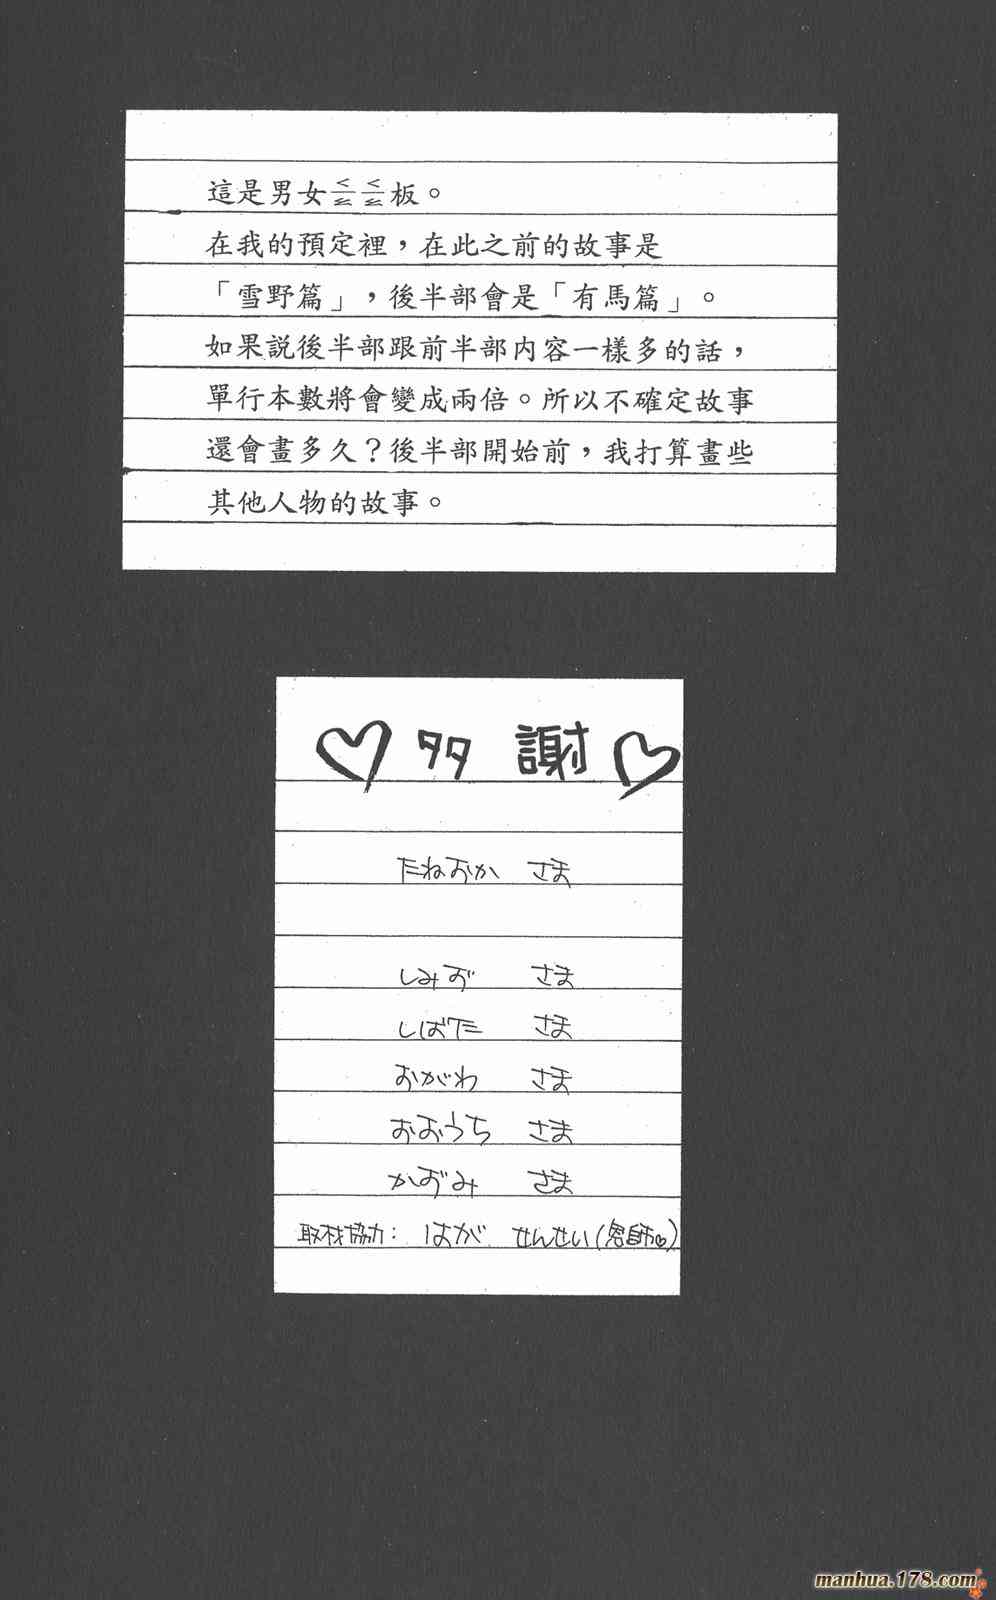 這是男女ㄑㄧㄠㄑㄧㄠ板。
在我的預定裡，在此之前的故事是
「雪野篇」，後半部會是「有馬篇」。
如果說後半部跟前半部內容一樣多的話，
單行本數將會變成兩倍。所以不確定故事
還會畫多久？後半部開始前，我打算畫些
其他人物的故事。
♡ 多 謝 ♡
たねおか さま
しみず さま
しばた さま
おがわ さま
おおうち さま
かずみ さま
取材協力： はが せんせい
manhua.178.com